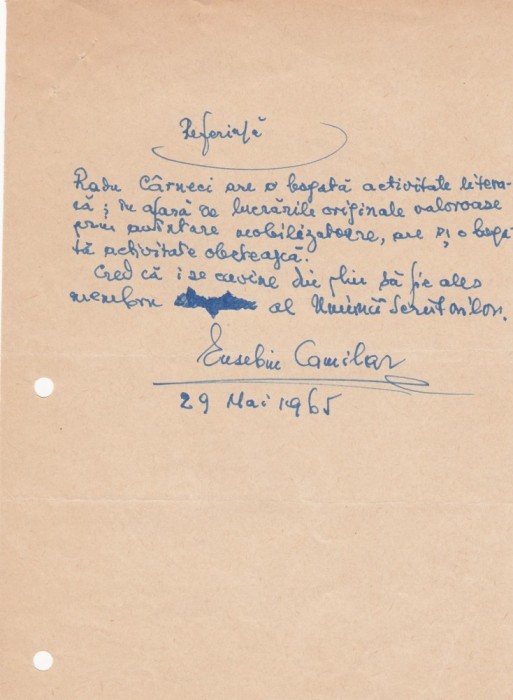 Referință
Radu Cârneci are o bogată activitate litera-
ră; în afară de lucrările originale valoroase
prin autentare mobilizatoare, are și o boga-
tă activitate obștească.
Cred că i se cuvine din plin să fie ales
membru al Uniunii Scriitorilor.
Eusebiu Camilar
29 Mai 1965